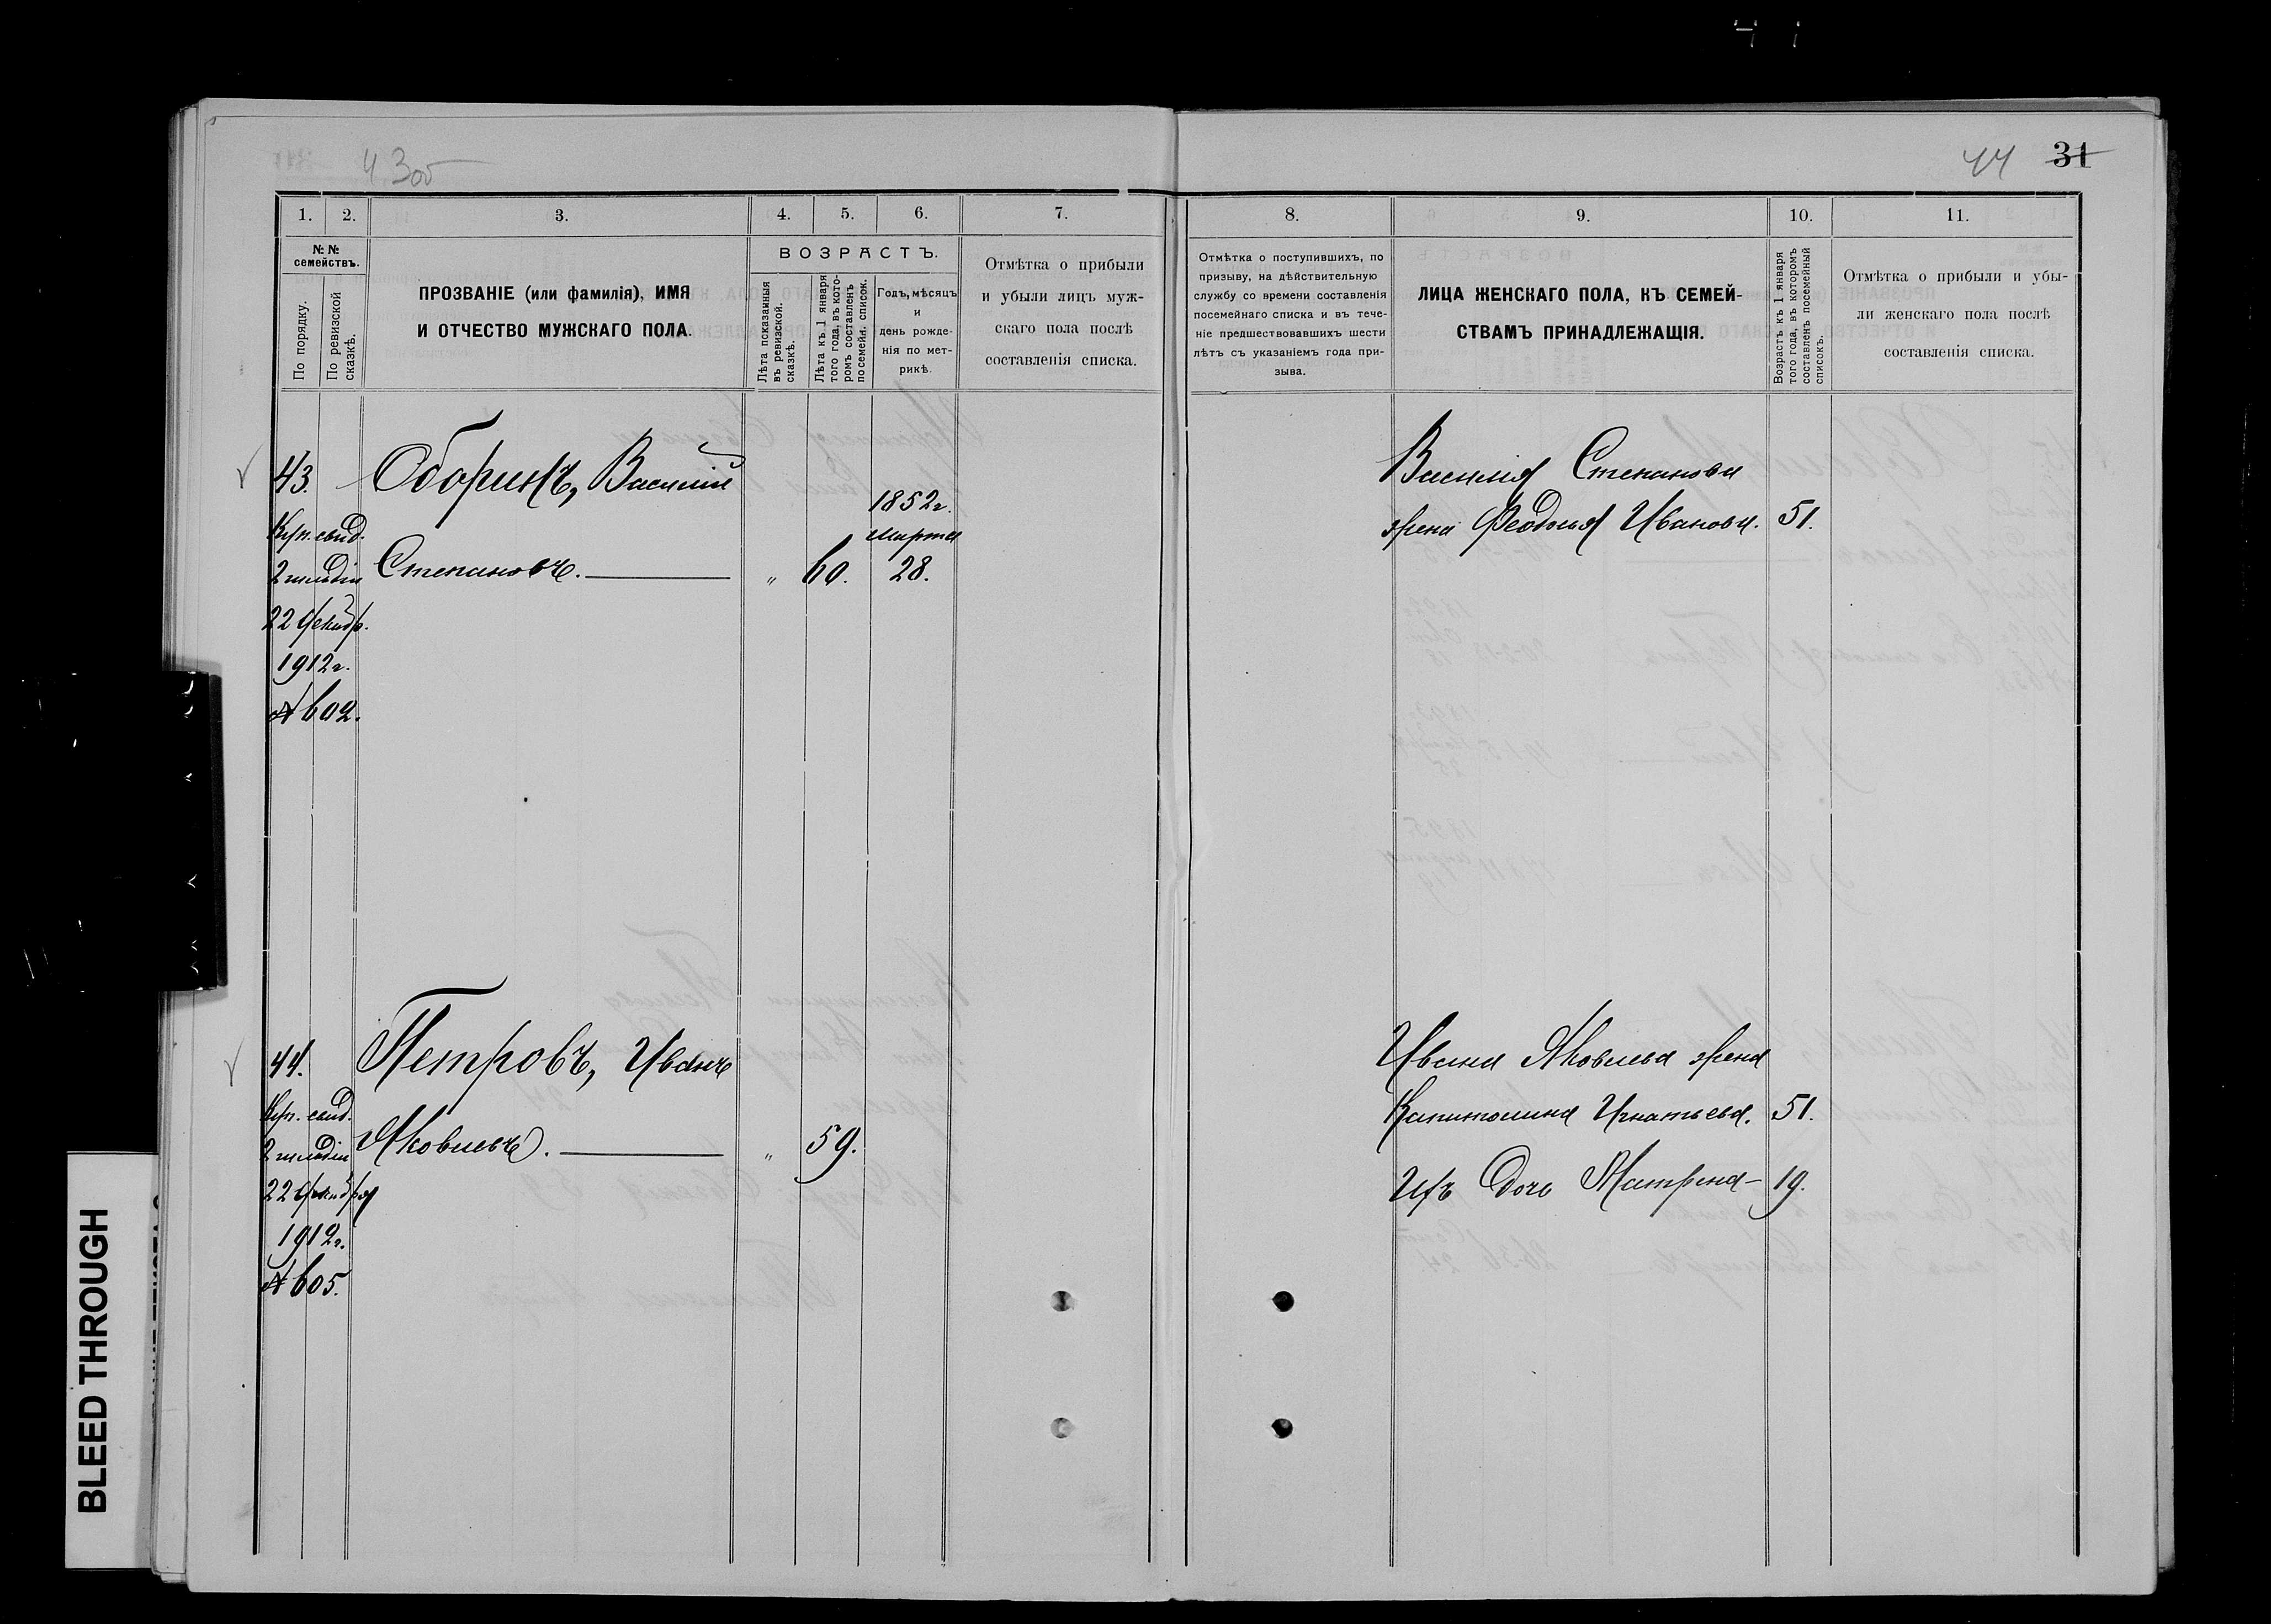 4 3 об
44 31
1. 2. 3. 4. 5. 6. 7.
№ №
семействъ.
По порядку.
По ревизской
сказкѣ.
ПРОЗВАНІЕ (или фамилія), ИМЯ
И ОТЧЕСТВО МУЖСКАГО ПОЛА.
ВОЗРАСТЪ.
Лѣта показанныя
въ ревизской.
сказкѣ.
Лѣта къ 1 января
того года, въ кото-
ромъ составленъ
посемейн. список.
Годъ, мѣсяцъ
и
день рожде-
нія по мет-
рикѣ.
Отмѣтка о прибыли
и убыли лицъ муж-
скаго пола послѣ
составленія списка.
43. Оборинъ, Василій
1852 г.
Куп. свид. марта
2 гильдіи Степановъ. " 60. 28.
22 декабр.
1912 г.
№ 602.
44. Петровъ, Иванъ
Куп. свид.
2 гильдіи Яковлевъ. " 59.
22 декабря
1912 г.
№ 605.
8. 9. 10. 11.
Отмѣтка о поступившихъ, по
призыву, на дѣйствительную
службу со времени составленія
посемейнаго списка и въ тече-
ніе предшествовавшихъ шести
лѣтъ съ указаніемъ года при-
зыва.
ЛИЦА ЖЕНСКАГО ПОЛА, КЪ СЕМЕЙ-
СТВАМЪ ПРИНАДЛЕЖАЩІЯ.
Возрастъ къ 1 января
того года, въ которомъ
составленъ посемейный
списокъ.
Отмѣтка о прибыли и убы-
ли женскаго пола послѣ
составленія списка.
Василія Степанова
жена Феодосья Иванова. 51.
Ивана Яковлева жена
Капитолина Игнатьева. 51.
Ихъ дочь Матрена - 19.
BLEED THROUGH